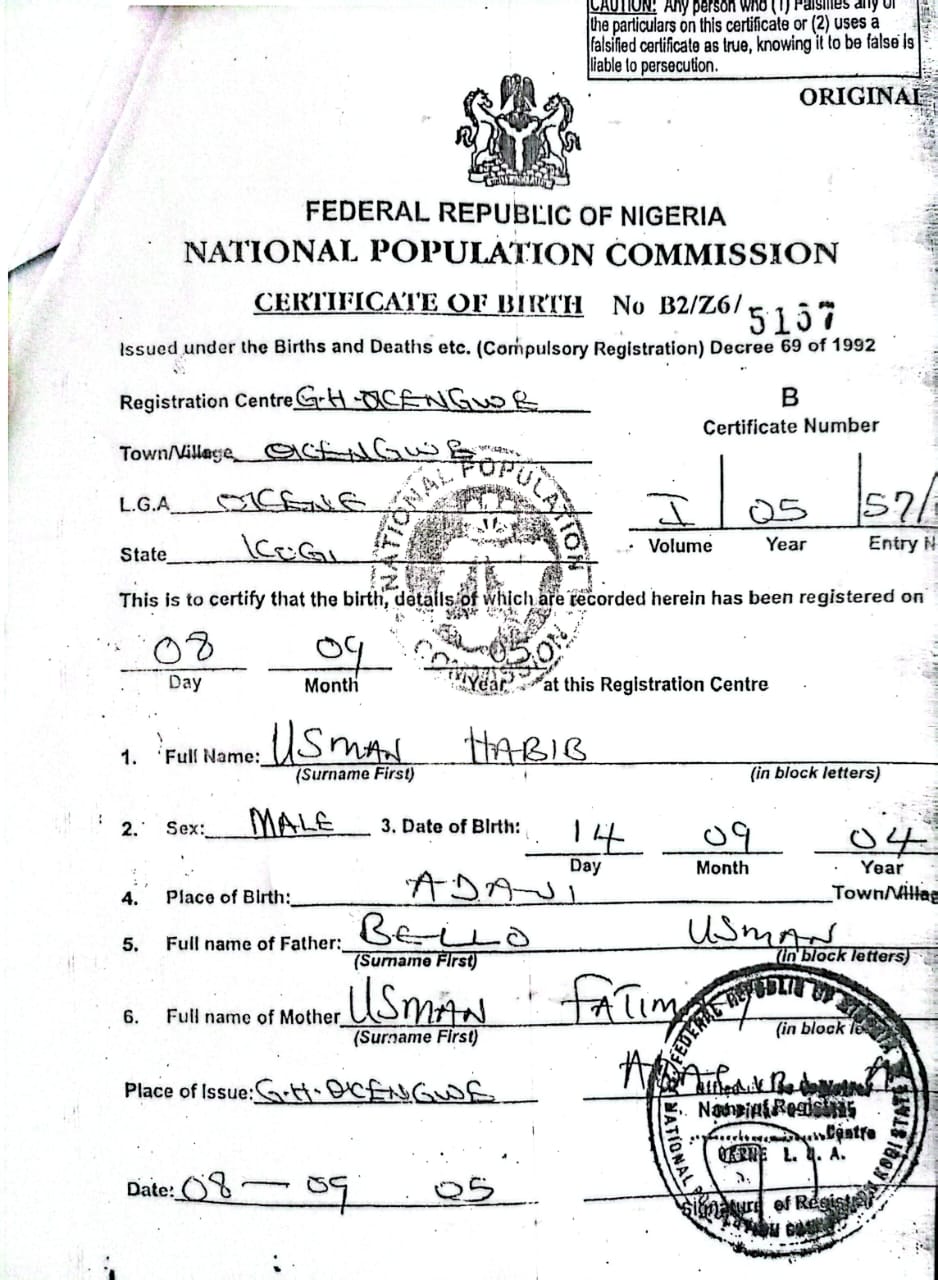 CAUTION: Any person who (1) Falsifies any of
the particulars on this certificate or (2) uses a
falsified certificate as true, knowing it to be false is
liable to persecution.
ORIGINAL
FEDERAL REPUBLIC OF NIGERIA
NATIONAL POPULATION COMMISSION
CERTIFICATE OF BIRTH No B2/Z6/ 5137
Issued under the Births and Deaths etc. (Compulsory Registration) Decree 69 of 1992
Registration Centre G.H. OKENGWE
B
Certificate Number
Town/Village OKENGWE
L.G.A OKENE
I 05 57/
Volume Year Entry N
State KOGI
NATIONAL POPULATION COMMISSION
This is to certify that the birth, details of which are recorded herein has been registered on
08 09 05
Day Month Year at this Registration Centre
1. Full Name: USMAN HABIB
(Surname First) (in block letters)
2. Sex: MALE 3. Date of Birth: 14 09 04
Day Month Year
4. Place of Birth: ADAVI Town/Villag
5. Full name of Father: BELLO USMAN
(Surname First) (in block letters)
6. Full name of Mother USMAN FATIM
(Surname First) (in block le
Place of Issue: G.H. OKENGWE
Name of Registrar
Centre
L. G. A.
Date: 08 - 09 05
Signature of Registrar
FEDERAL REPUBLIC OF NIGERIA
NATIONAL POPULATION COMMISSION KOGI STATE